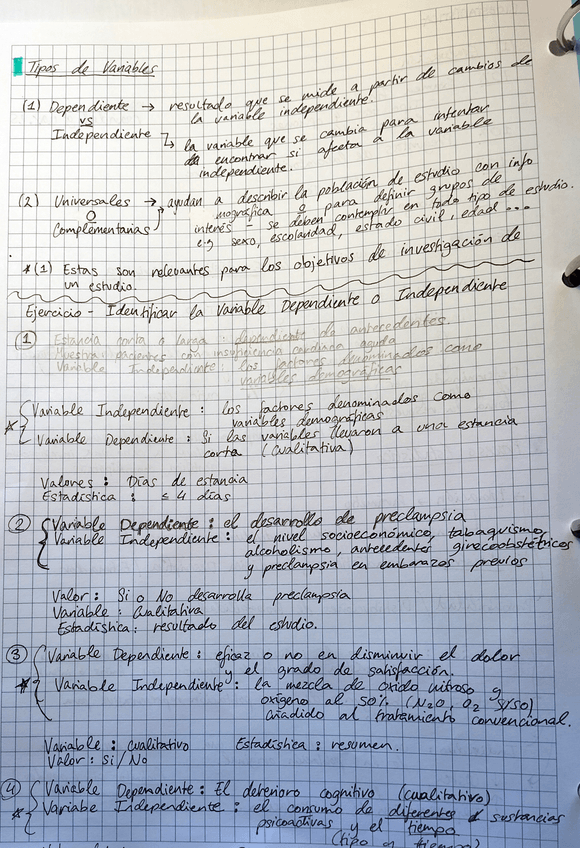 Tipos de Variables
(1) Dependiente → resultado que se mide a partir de cambios de
vs la variable independiente.
Independiente ↳ la variable que se cambia para intentar
encontrar si afecta a la variable
independiente.
(2) Universales → ayudan a describir la población de estudio con info
O mográfica o para definir grupos de
Complementarias interés - se deben contemplar en todo tipo de estudio.
e.g sexo, escolaridad, estado civil, edad ...
*(1) Estas son relevantes para los objetivos de investigación de
un estudio.
Ejercicio - Identificar la Variable Dependiente o Independiente
① Estancia corta o larga : dependiente de antecedentes.
Muestra: pacientes con insuficiencia cardiaca aguda
Variable Independiente: los factores denominados como
variables demográficas
* Variable Independiente : los factores denominados como
variables demográficas
Variable Dependiente : Si las variables llevaron a una estancia
corta (cualitativa)
Valores : Días de estancia
Estadística : ≤ 4 días
② Variable Dependiente : el desarrollo de preclampsia
Variable Independiente : el nivel socioeconómico, tabaquismo,
alcoholismo, antecedentes ginecoobstétricos
y preclampsia en embarazos previos
Valor : Si o No desarrolla preclampsia
Variable : Cualitativa
Estadística : resultado del estudio.
③ Variable Dependiente : eficaz o no en disminuir el dolor
y el grado de satisfacción.
* Variable Independiente : la mezcla de oxido nitroso y
oxígeno al 50% (N₂O, O₂ S/SO)
añadido al tratamiento convencional.
Variable : cualitativo Estadística : resumen.
Valor : Si / No
④ Variable Dependiente : El deterioro cognitivo (cualitativo)
* Variabe Independiente : el consumo de diferentes sustancias
psicoactivas y el tiempo
(tipo y tiempo)